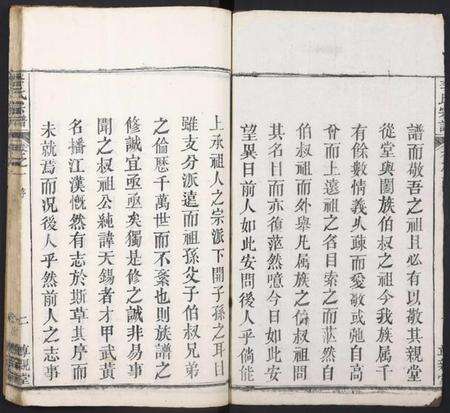 譜而敬吾之祖且必有以敬其親堂
從堂與闔族伯叔之祖今我族属千
有餘數情義久疎而愛敬或弛自高
曾而上遠祖之名目索之而茫然自
伯叔祖而外舉凡属族之伯叔祖問
其名目而亦復茫然噫今日如此安
望異日前人如此安問後人乎倘能
上承祖人之宗派下開子孫之耳目
雖支分派遠而祖孫父子伯叔兄弟
之倫歷千萬世而不紊也則族譜之
修誠宜亟亟矣獨是修之誠非易事
聞之叔祖公純諱天錫者才甲武黃
名播江漢慨然有志於斯草其序而
未就焉而况後人乎然前人之志事
氏宗譜 二 親堂